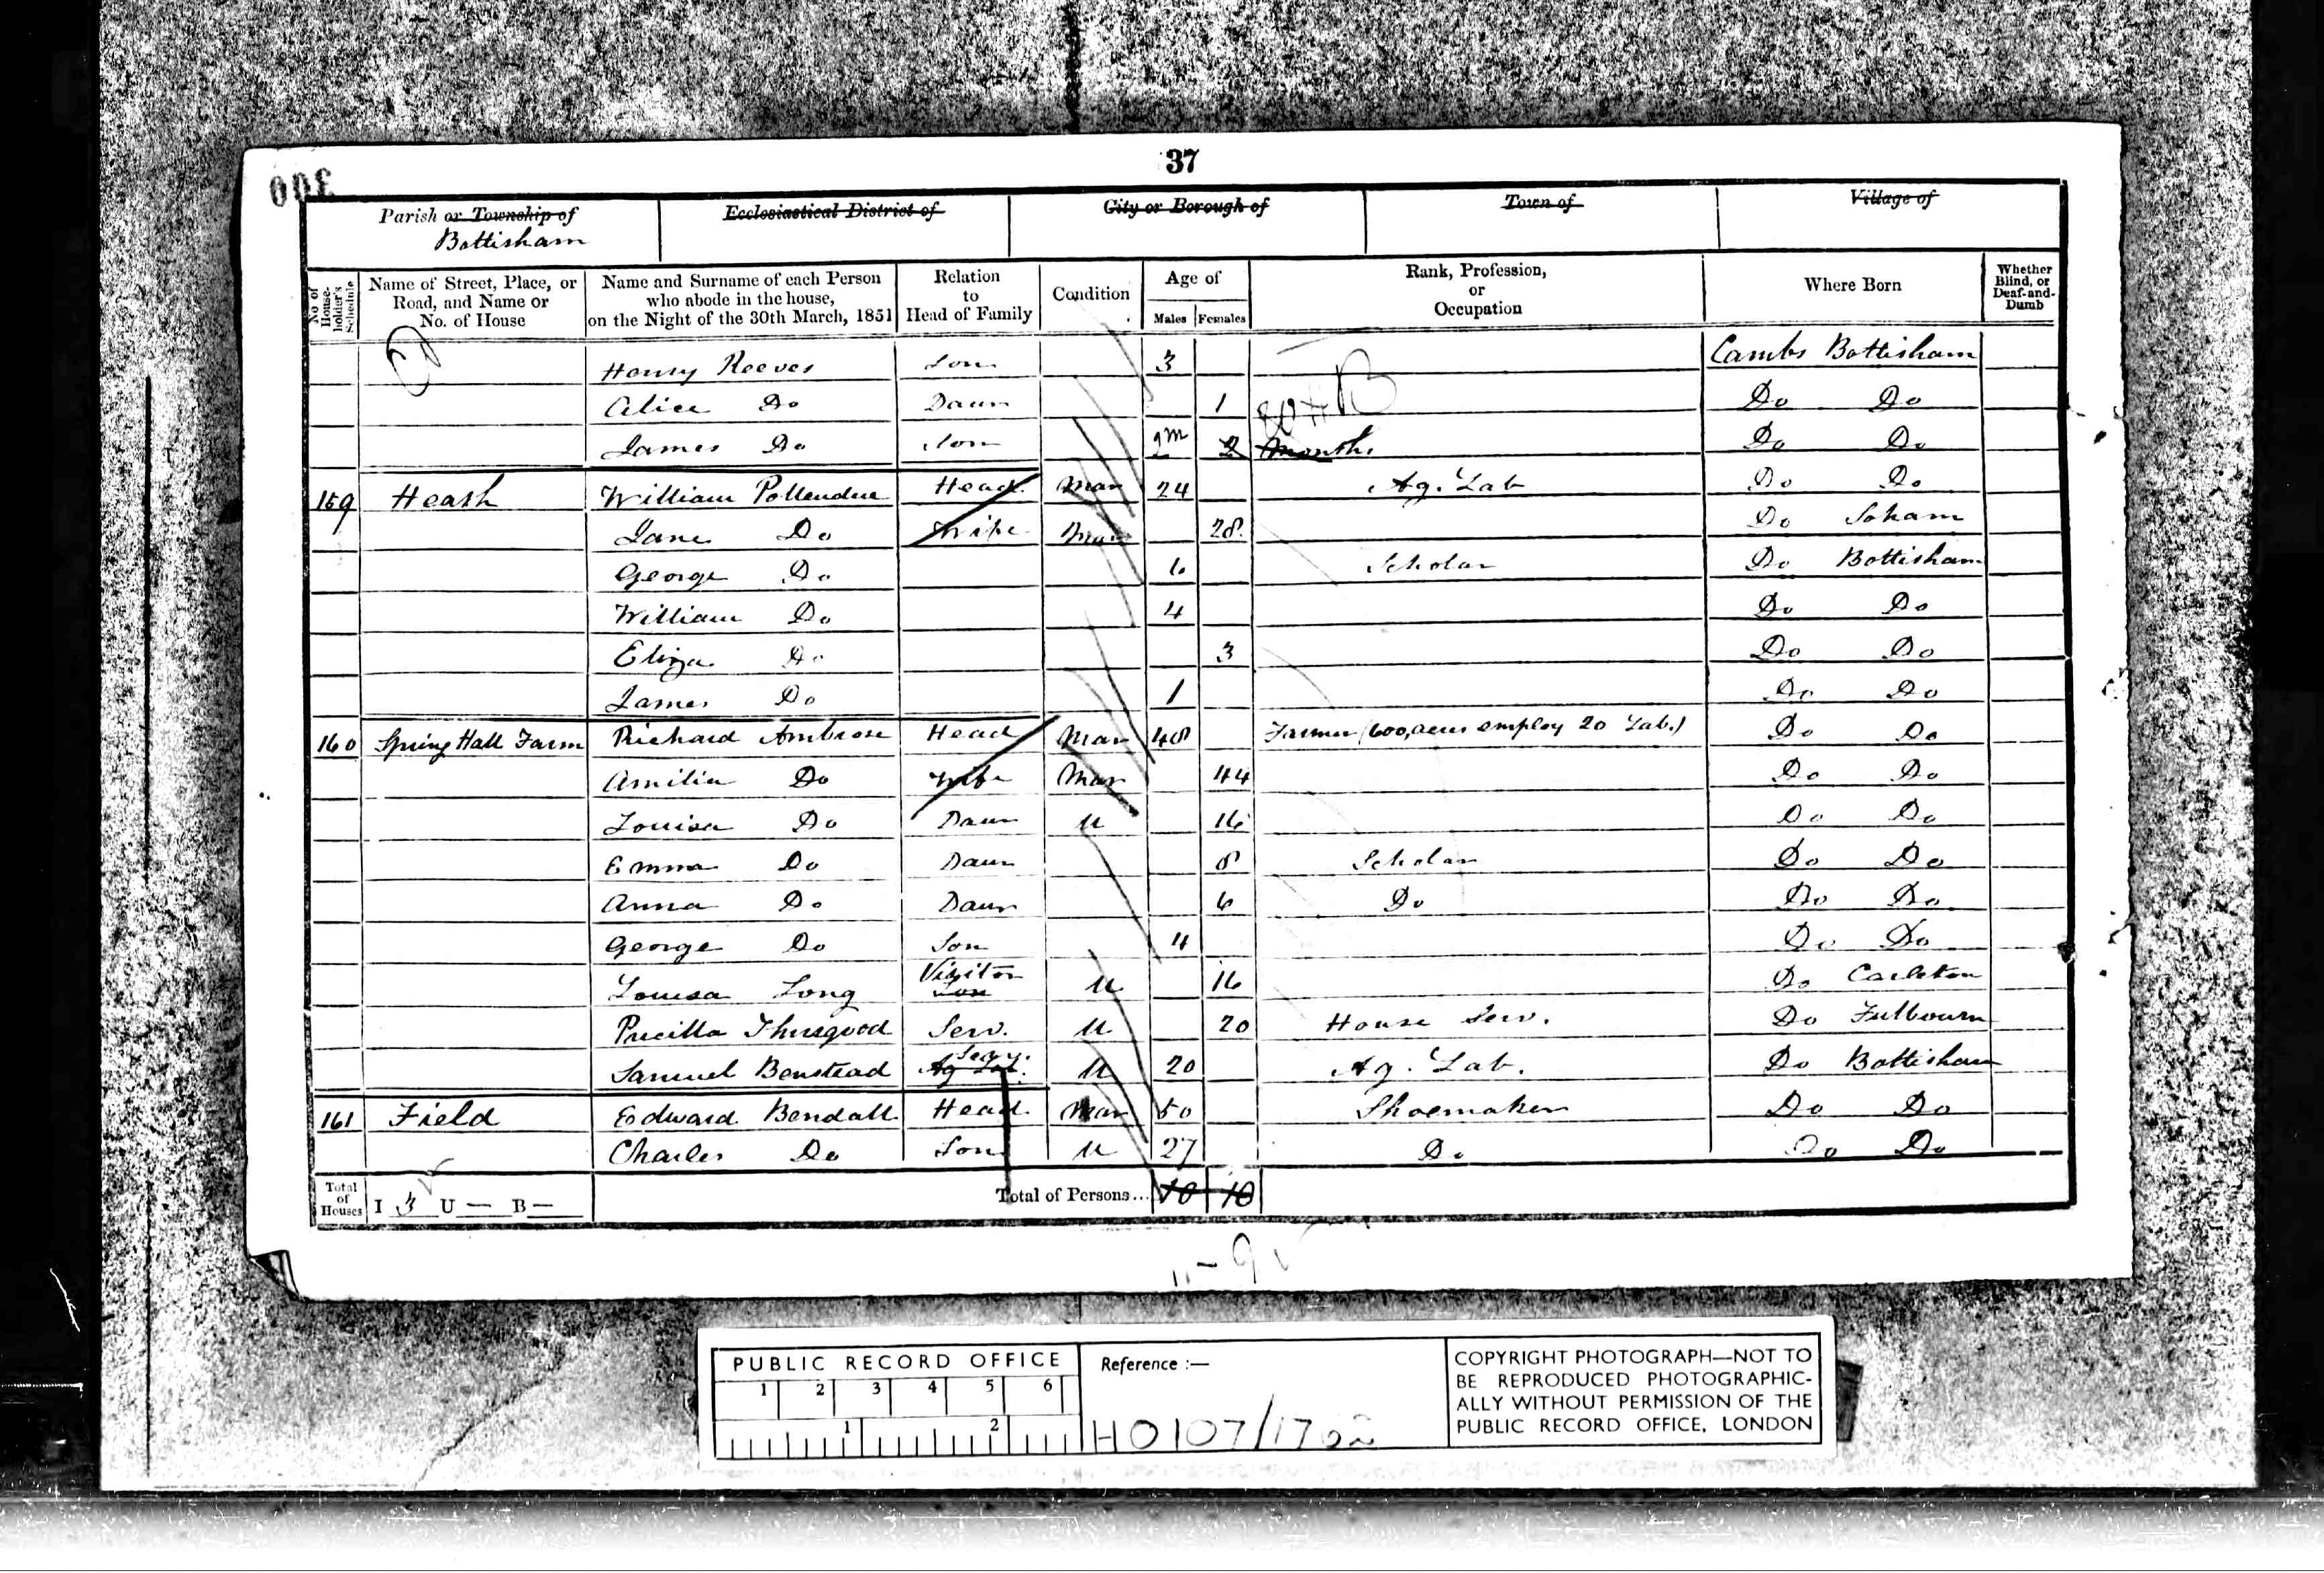 37
300
Parish or Township of Bottisham
Ecclesiastical District of
City or Borough of
Town of
Village of
No. of House-holder's Schedule
Name of Street, Place, or Road, and Name or No. of House
Name and Surname of each Person who abode in the house, on the Night of the 30th March, 1851
Relation to Head of Family
Condition
Age of Males Females
Rank, Profession, or Occupation
Where Born
Whether Blind, or Deaf-and-Dumb
Henry Reeves Son 3 Cambs Bottisham
Alice Do Daur 1 Do Do
James Do Son 2m 2 Months Do Do
159 Heath William Pollendine Head Mar 24 Ag. Lab Do Do
Jane Do Wife Mar 28 Do Soham
George Do 6 Scholar Do Bottisham
William Do 4 Do Do
Eliza Do 3 Do Do
James Do 1 Do Do
160 Spring Hall Farm Richard Ambrose Head Mar 48 Farmer (600 acres employ 20 Lab.) Do Do
Amilia Do Wife Mar 44 Do Do
Louisa Do Daur U 16 Do Do
Emma Do Daur 8 Scholar Do Do
Anna Do Daur 6 Do Do Do
George Do Son 4 Do Do
Louisa Long Son Visitor U 16 Do Carleton
Pricilla Thurgood Serv. U 20 House Serv. Do Fulbourn
Samuel Benstead Ag Lab. Serv. U 20 Ag. Lab. Do Bottisham
161 Field Edward Bendall Head Mar 50 Shoemaker Do Do
Charles Do Son U 27 Do Do Do
Total of Houses I 3 U — B —
Total of Persons... 10 10
11 - 9
PUBLIC RECORD OFFICE
1 2 3 4 5 6
1 2
Reference :—
HO107/1762
COPYRIGHT PHOTOGRAPH—NOT TO
BE REPRODUCED PHOTOGRAPHIC-
ALLY WITHOUT PERMISSION OF THE
PUBLIC RECORD OFFICE, LONDON